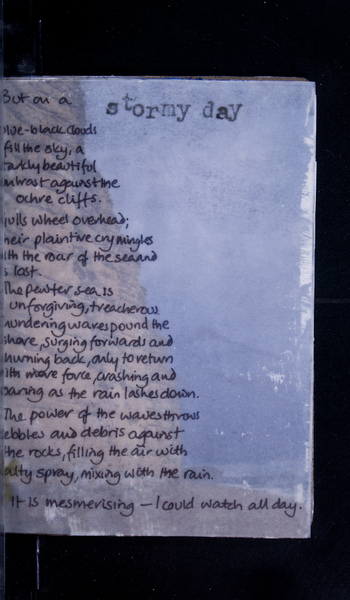 But on a stormy day
blue-black clouds
fill the sky, a
starkly beautiful
contrast against the
ochre cliffs.
Gulls wheel overhead;
their plaintive cry mingles
with the roar of the sea and
is lost.
The pewter sea is
unforgiving, treacherous
thundering waves pound the
shore, surging forwards and
churning back, only to return
with more force, crashing and
roaring as the rain lashes down.
The power of the waves throws
pebbles and debris against
the rocks, filling the air with
salty spray, mixing with the rain.
It is mesmerising – I could watch all day.